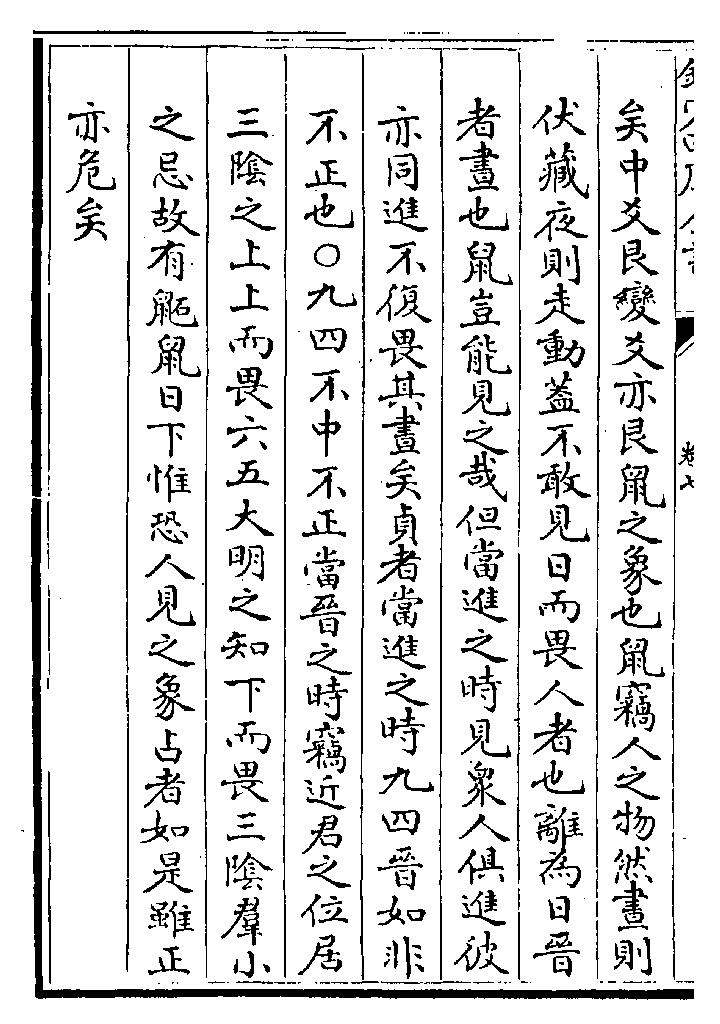 矣中爻艮變爻亦艮鼠之象也鼠竊人之物然晝則
伏藏夜則走動蓋不敢見日而畏人者也離為日晉
者晝也鼠豈能見之哉但當進之時見衆人俱進彼
亦同進不復畏其晝矣貞者當進之時九四晉如非
不正也○九四不中不正當晉之時竊近君之位居
三陰之上上而畏六五大明之知下而畏三陰羣小
之忌故有鼫鼠日下惟恐人見之象占者如是雖正
亦危矣
卷七